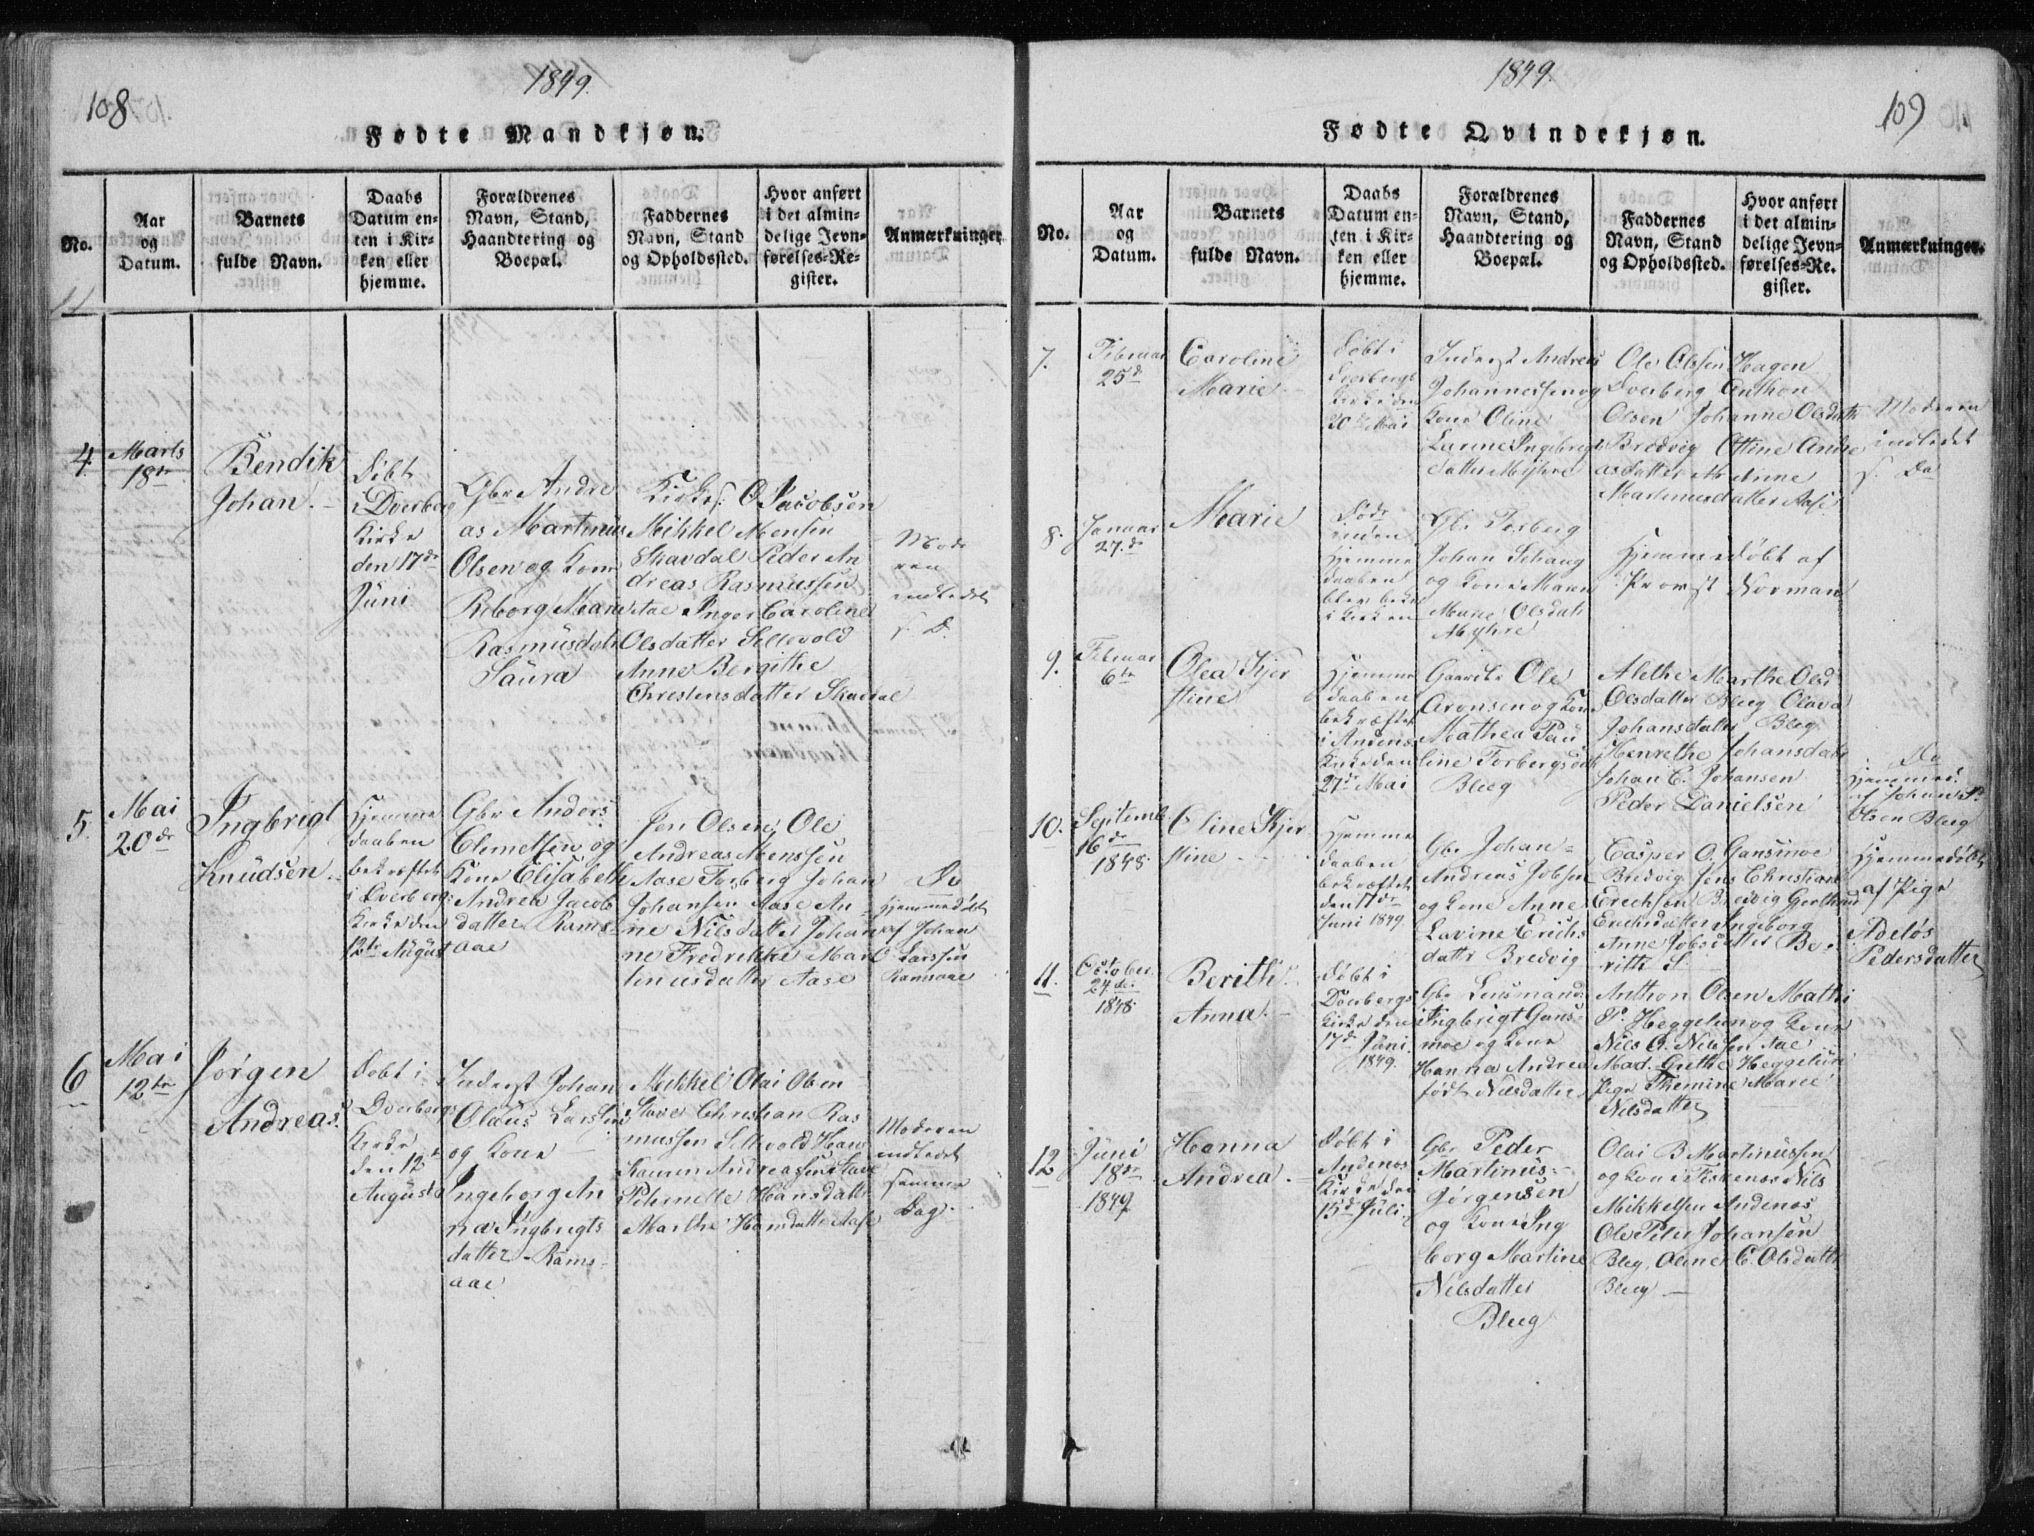 108
1849.
Fødte Mandkjøn.
No.
Aar
og
Datum.
Barnets
fulde Navn.
Daabs
Datum en-
ten i Kir-
ken eller
hjemme.
Forældrenes
Navn, Stand,
Haandtering og
Boepæl.
Faddernes
Navn, Stand
og Opholdssted.
Hvor anført
i det almin-
delige Jevn-
førelses-Re-
gister.
Anmærkninger
4.
Marts
18de
Bendik
Johan.
Døbt
i Dverberg
Kirke
den 17de
Juni
Gbr Andre
as Martinus
Olsen og Kone
Reborg Mari
Rasmusdatr
Saura
Kirkes: O Jacobsen
Mikkel Monsen
Skavdal Peder An
dreas Rasmussen
Inger Caroline
Olsdatter Sellevold
Anne Bergithe
Christensdatter Skavdal
Mode
ren
indledet
s. D.
5.
Mai
20de
Ingbrigt
Knudsen.
Hjemme
daaben
bekræftet
i Dverberg
Kirke den
12te August
Gbr Anders
Clemetsen og
Kone Elisabeth
Andrea Jacobs
datter Rams-
aae
Jon Olsen, Ole
Andreas Monssen
Aase Torberg Johan
Johansen Aase An-
ne Nilsdatter Johan
ne Fredrikke Mart
inusdatter Aase
Do
Hjemmedøbt
af Johan
Larssen
Ramsaae
6
Mai
12te
Jørgen
Andreas.
Døbt i
Dverbergs
Kirke
den 12te
Augusto
Inderst Johan
Olaus Larssen
og Kone
Ingeborg An
na Ingbrigts
datter Rams-
aae
Mikkel Olai Olsen
Stave Christian Ras
mussen Sellvold Hans
Andreassen Stave
Pernelle Hansdattr
Marthe Hansdatter Aase
Moderen
indledet
samme
Dag.
1849.
109
Fødte Qvindekjøn.
No.
Aar
og
Datum.
Barnets
fulde Navn.
Daabs
Datum en-
ten i Kir-
ken eller
hjemme.
Forældrenes
Navn, Stand,
Haandtering og
Boepæl.
Faddernes
Navn, Stand
og Opholdssted.
Hvor anført
i det almin-
delige Jevn-
førelses-Re-
gister.
Anmærkninger.
7.
Februar
25d
Caroline
Marie
Døbt i
Dverbergs
Kirke den
20de Mai
Inderst Andreas
Johannessen og
Kone Oline
Lavine Ingebrigt
datter Myhre
Ole Olsen Hagen
Dverberg Anthon
Olsen Johanne Olsdatter
Bredvig Oline Andre
asdatter Anne
Martinusdatter Aase
Moderen
indledet
s. Da
8.
Januar
27.de
Marie
Hjemme
daaben
blev bekr
i Kirken
Gbr Torberg
Johan Schaug
og Kone Maren
Marie Olsdatr
Myhre
Hjemmedøbt af
Provst Norman
9.
Februar
6te
Olea Kjer
stine
Hjemme
daaben
bekræftet
i Andenes
Kirke den
27de Mai
Gaardbr Ole
Aronsen og Kone
Mathea Pau
line Torbergsdatr
Bleeg
Alethe Marthe Olsd
Olsdatter Bleeg Olava
Johansdatter Bleeg
Henrethe Johansdatr
Johan C. Johansen
Peder Danielsen
Do
Hjemmed.
af Johan P.
Olsen Bleeg
10.
Septemb.
16de
1848.
Oline Kjer
stine
Hjemme
daaben
bekræftet
den 17de
Juni 1849.
Gbr Johan
Andreas Jobsen
og Kone Anne
Lavine Erichs
dattr Bredvig
Casper O. Gansmoe
Bredvig Jens Christian
Erichsen Bredvig Gertrud
Erichsdatter Ingeborg
Anne Jobsdatter Be-
rith S.
Hjemmedøbt
af Pige
Adeløs
Pedersdatter
11.
October
24de
1848.
Berith
Anna.
Døbt i
Dverbergs
Kirke den
17de Juni
1849.
Gbr Lensmand
Ingbrigt Gans-
moe og Kone
Hanna Andrea
født Nilsdatter
Anthon Olsen Mathi
P. Heggelun og Kone
Nils O. Nilssen Aae
Mad. Grethe Heggelun
Pige Themine Marie
Nilsdatter
12
Juni
18de
1849
Hanna
Andrea.
Døbt i
Andenes
Kirke den
15de Juli
Gbr Peder
Martinus
Jørgensen
og Kone Ing
borg Martine
Nilsdatter
Bleeg
Olai B Martinussen
og Kone Nils
Mikkelsen Andenes
Ole Peter Johansen
Bleg, C. Olsdatter
Bleeg